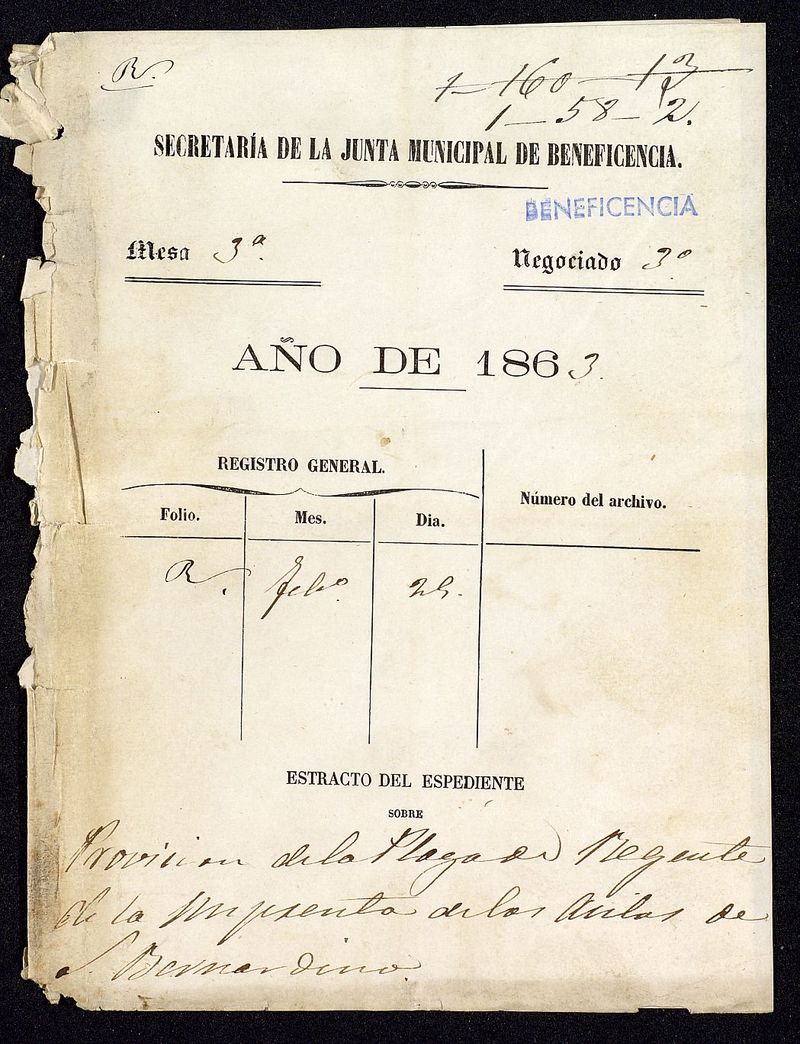 R.
1-160-13
1-58-2.
SECRETARÍA DE LA JUNTA MUNICIPAL DE BENEFICENCIA.
BENEFICENCIA
Mesa 3ª.
Negociado 3º
AÑO DE 1863.
REGISTRO GENERAL.
Número del archivo.
Folio. Mes. Dia.
R. Febº. 25.
ESTRACTO DEL ESPEDIENTE
SOBRE
Provision de la Plaza de Regente
de la Imprenta de los Asilos de
S. Bernardino.